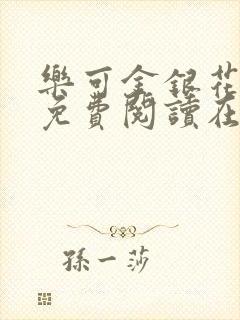 樂可金銀花
免費閱讀在
孫一莎